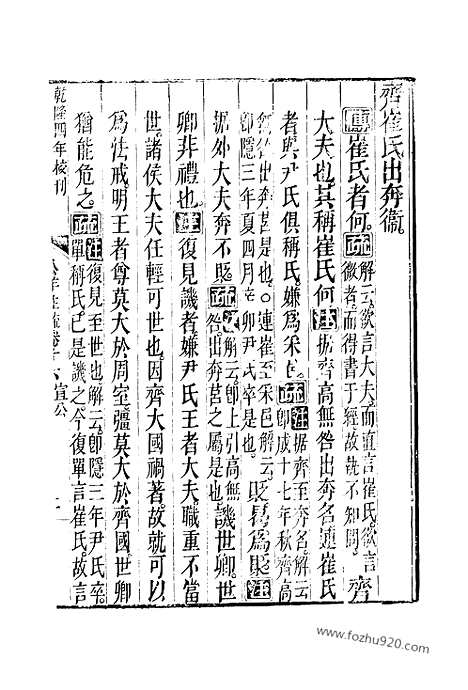 齊崔氏出奔衞
傳崔氏者何疏解云欲言大夫而直言崔氏欲言微者而得書于經故執不知問齊
大夫也其稱崔氏何注据齊高無咎出奔名連崔氏
者與尹氏俱稱氏嫌爲采邑疏注据齊至奔名解云即成十七年秋齊高
無咎出奔莒是也○連崔至采邑解云即隱三年夏四月辛卯尹氏卒是也貶曷爲貶注
据外大夫奔不貶疏注解云即上引高無咎出奔莒之屬是也譏世卿世
卿非禮也注復見譏者嫌尹氏王者大夫職重不當
世諸侯大夫任輕可世也因齊大國禍著故就可以
爲法戒明王者尊莫大於周室彊莫大於齊國世卿
猶能危之疏注復見至世也解云即隱三年尹氏卒單稱氏已是譏之今復單言崔氏故言
乾隆四年校刊
公羊注疏卷十六宣公